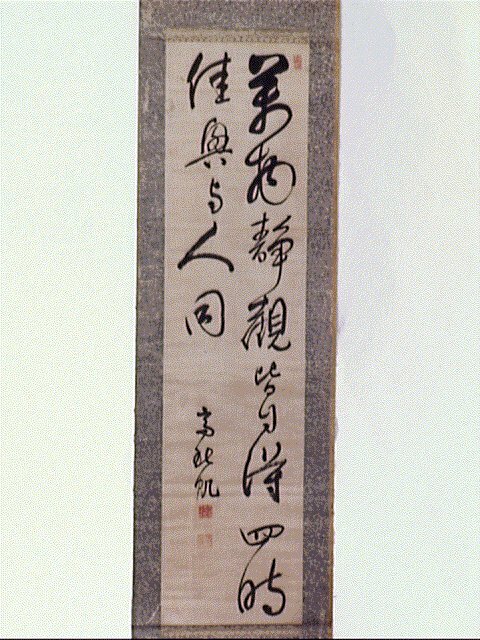 萬物靜觀皆自得四時
佳興与人同
高秋帆